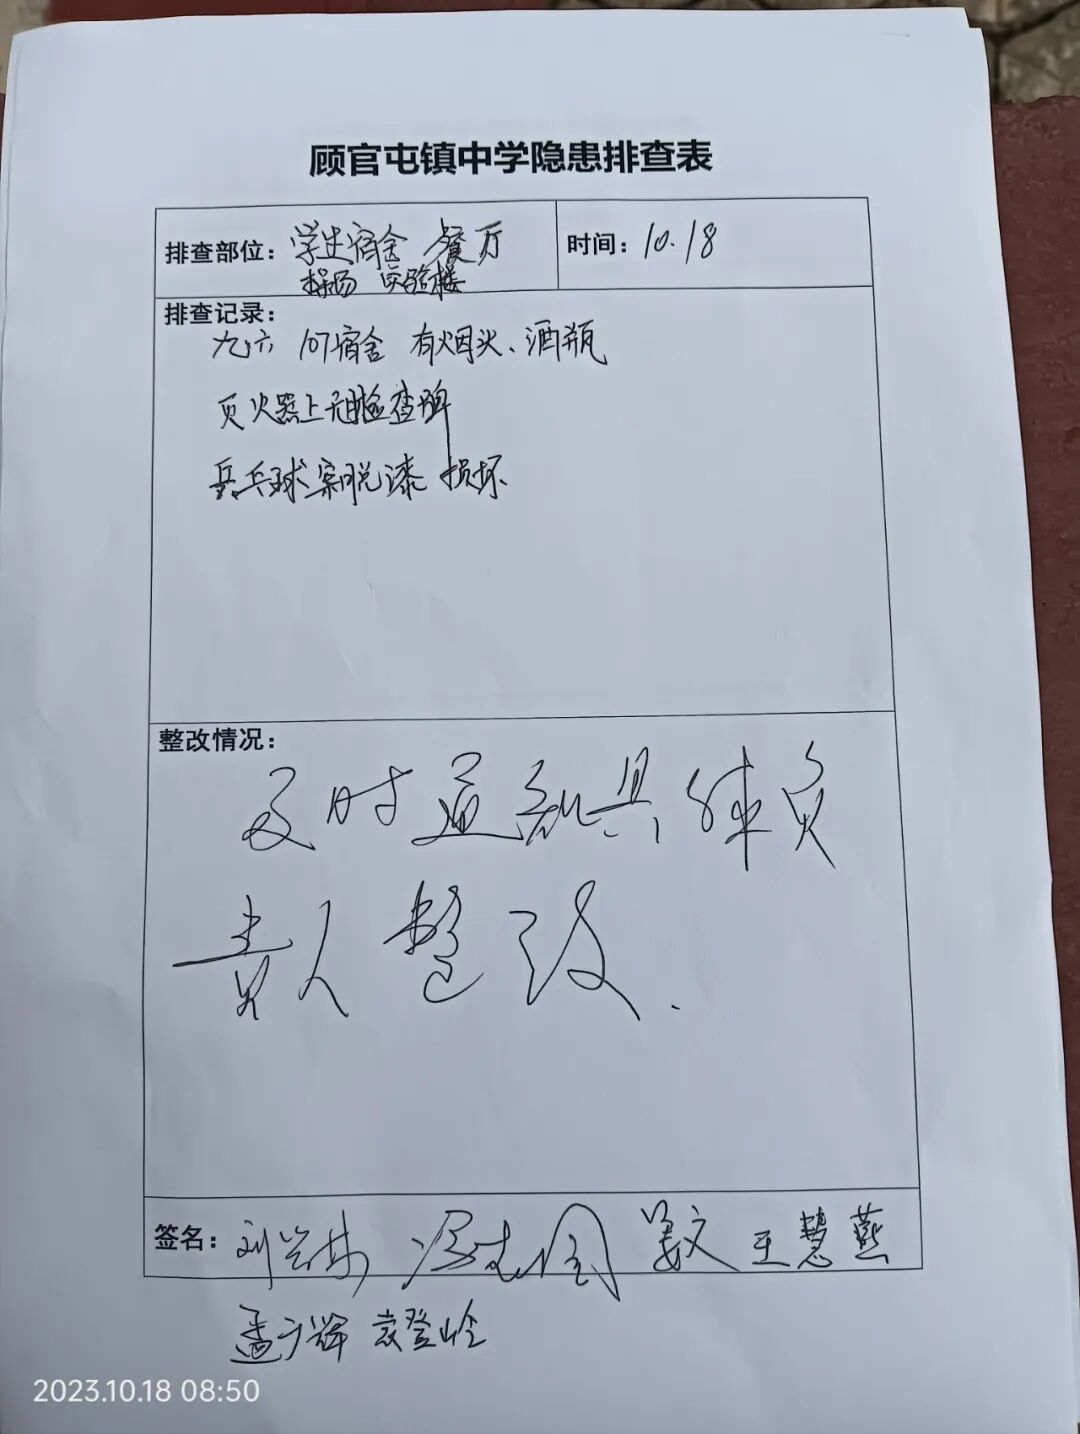 顾官屯镇中学隐患排查表
排查部位：学生宿舍 餐厅
操场 实验楼
时间：10.18
排查记录：
九.六 107宿舍 有烟火、酒瓶
灭火器上无检查牌
乒乓球案脱漆 损坏
整改情况：
及时通知具体负
责人整改.
签名：刘 姜文 王慧燕
孟广辉 袁登岭
2023.10.18 08:50